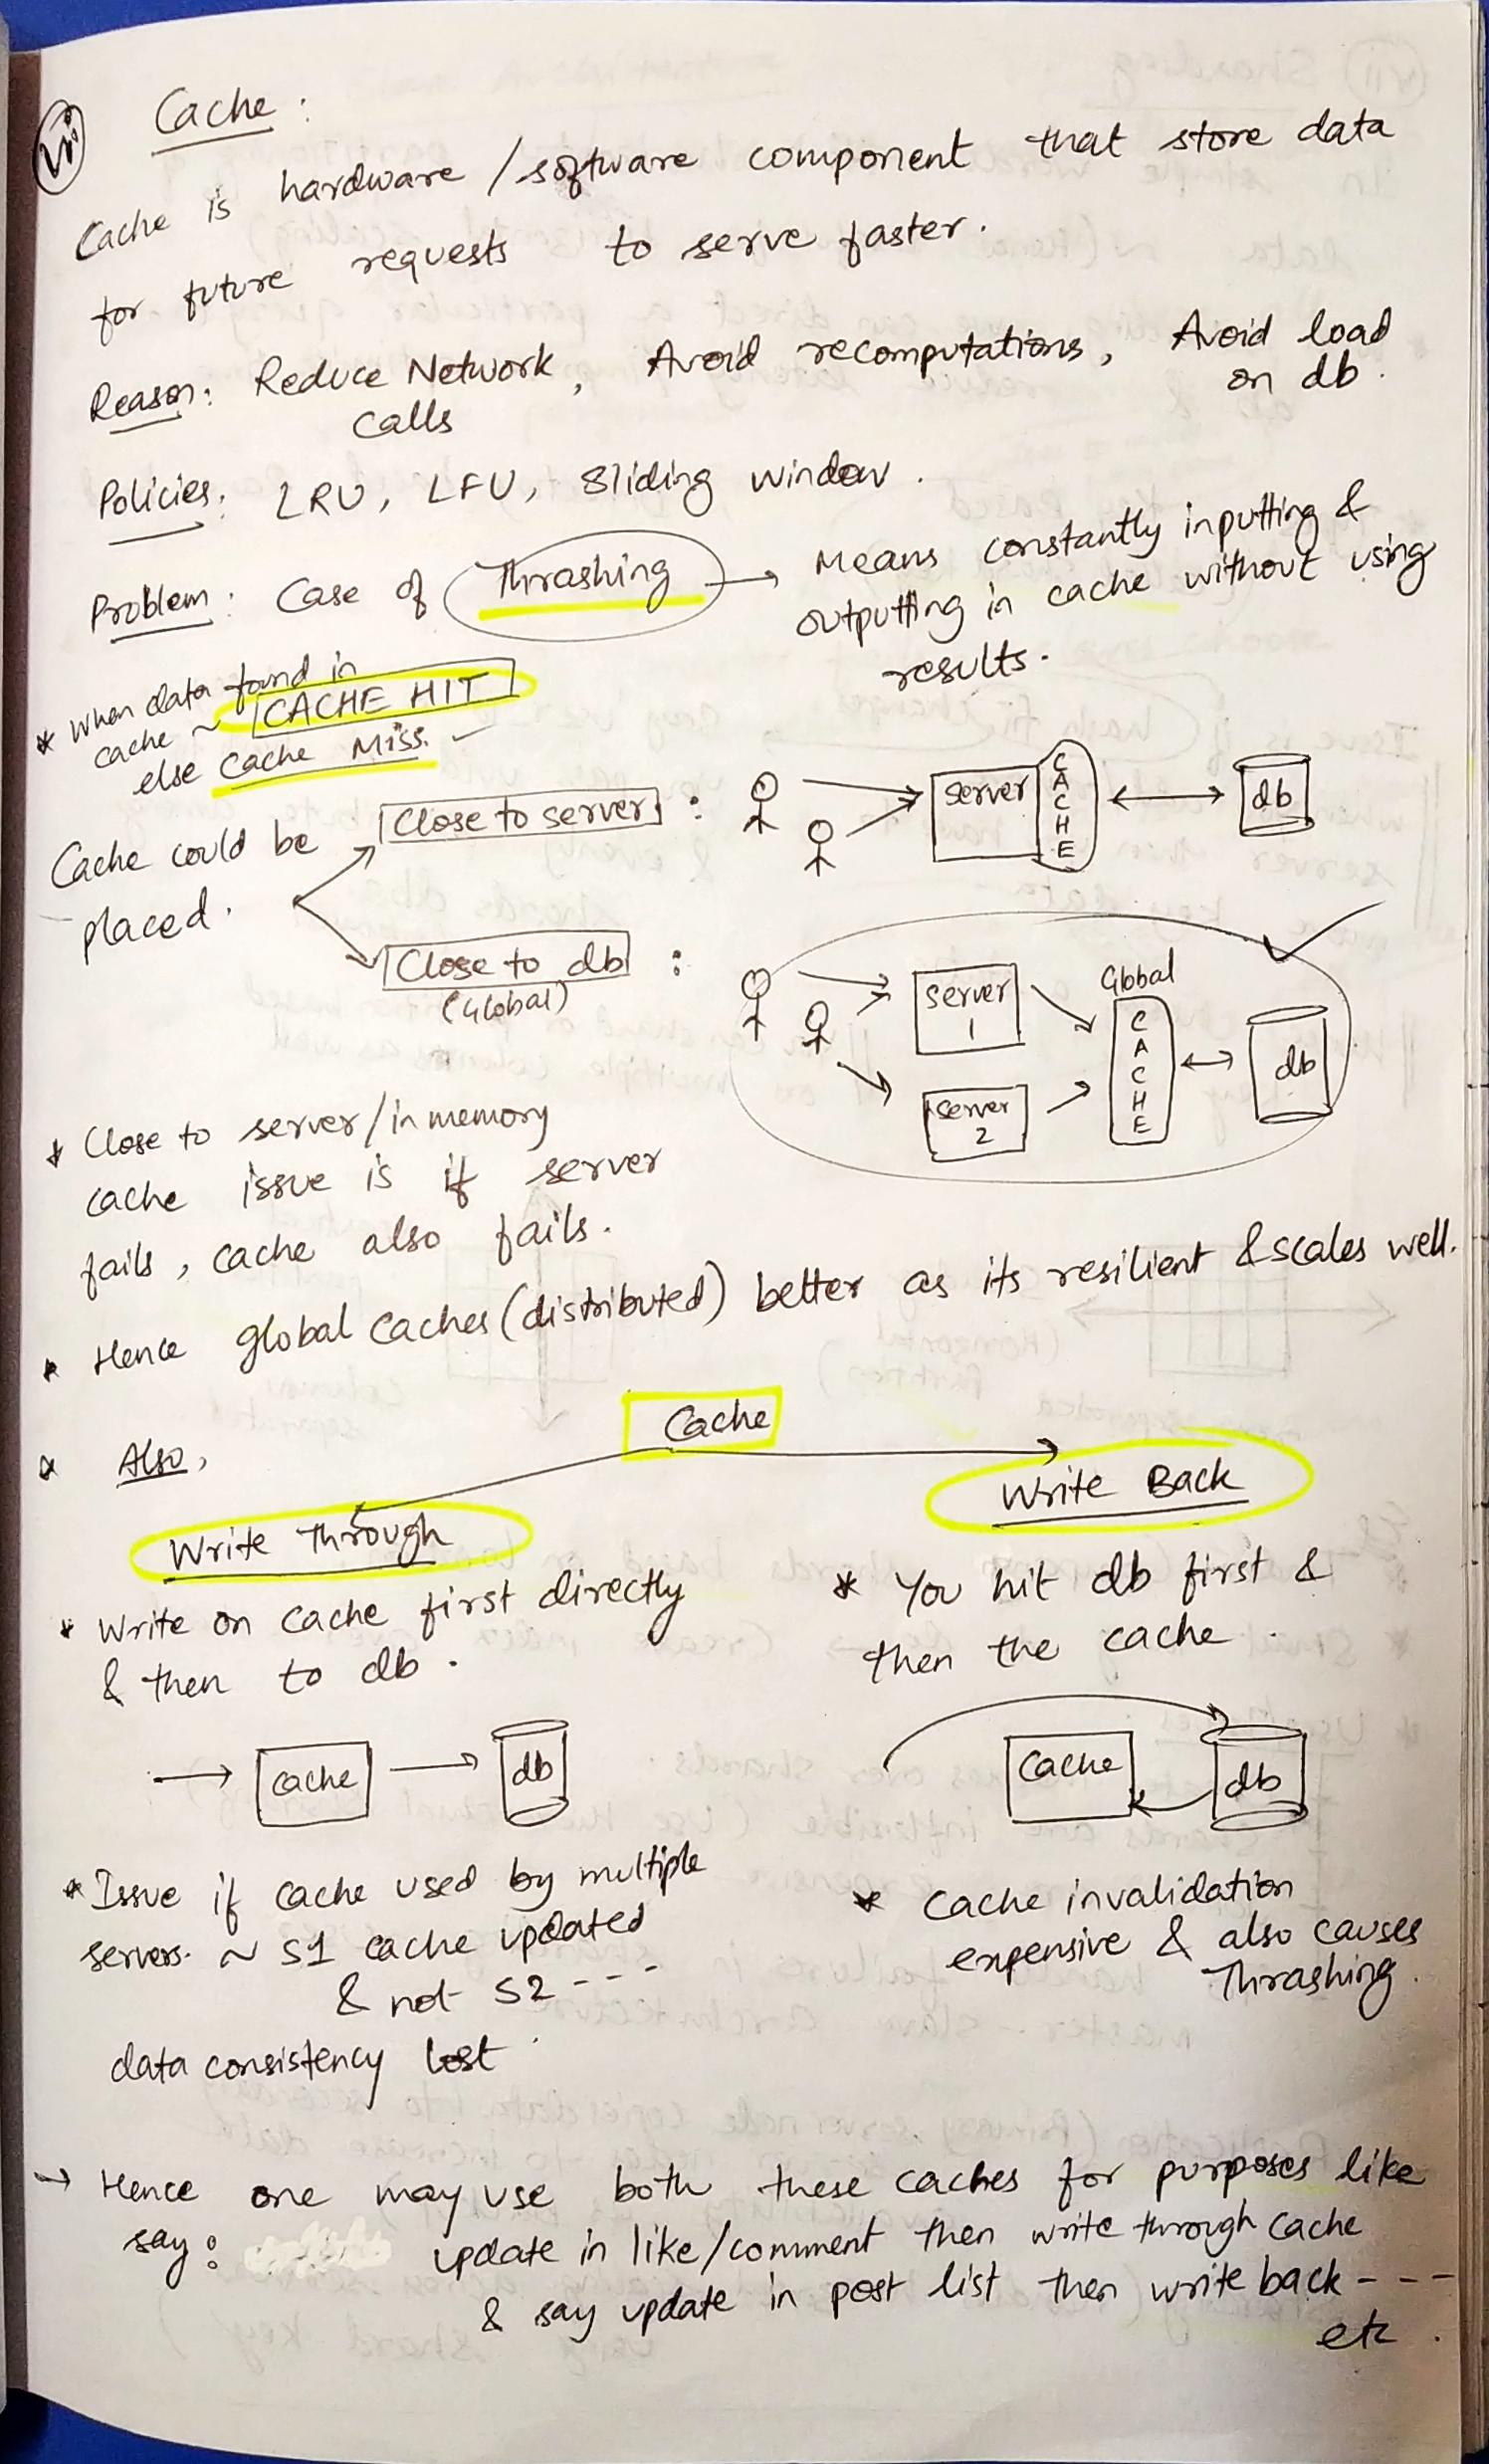 vi
Cache :
Cache is hardware / software component that store data
for future requests to serve faster.
Reason: Reduce Network calls, Avoid recomputations, Avoid load on db.
Policies: LRU, LFU, Sliding window.
Problem: Case of Thrashing → Means constantly inputting &
outputting in cache without using
results.
* When data found in
cache ~ CACHE HIT
else Cache Miss.
Cache could be
placed.
Close to server :
server
CACHE
db
Close to db :
(Global)
server
1
server
2
Global
CACHE
db
* Close to server/in memory
cache issue is if server
fails, cache also fails.
* Hence global caches (distributed) better as its resilient & scales well.
* Also,
Cache
Write Through
* Write on cache first directly
& then to db.
cache
db
* Issue if cache used by multiple
servers. ~ S1 cache updated
& not S2 ---
data consistency lost.
Write Back
* You hit db first &
then the cache.
Cache
db
* Cache invalidation
expensive & also causes
Thrashing.
→ Hence one may use both these caches for purposes like
say: update in like/comment then write through cache
& say update in post list then write back ---
etc.